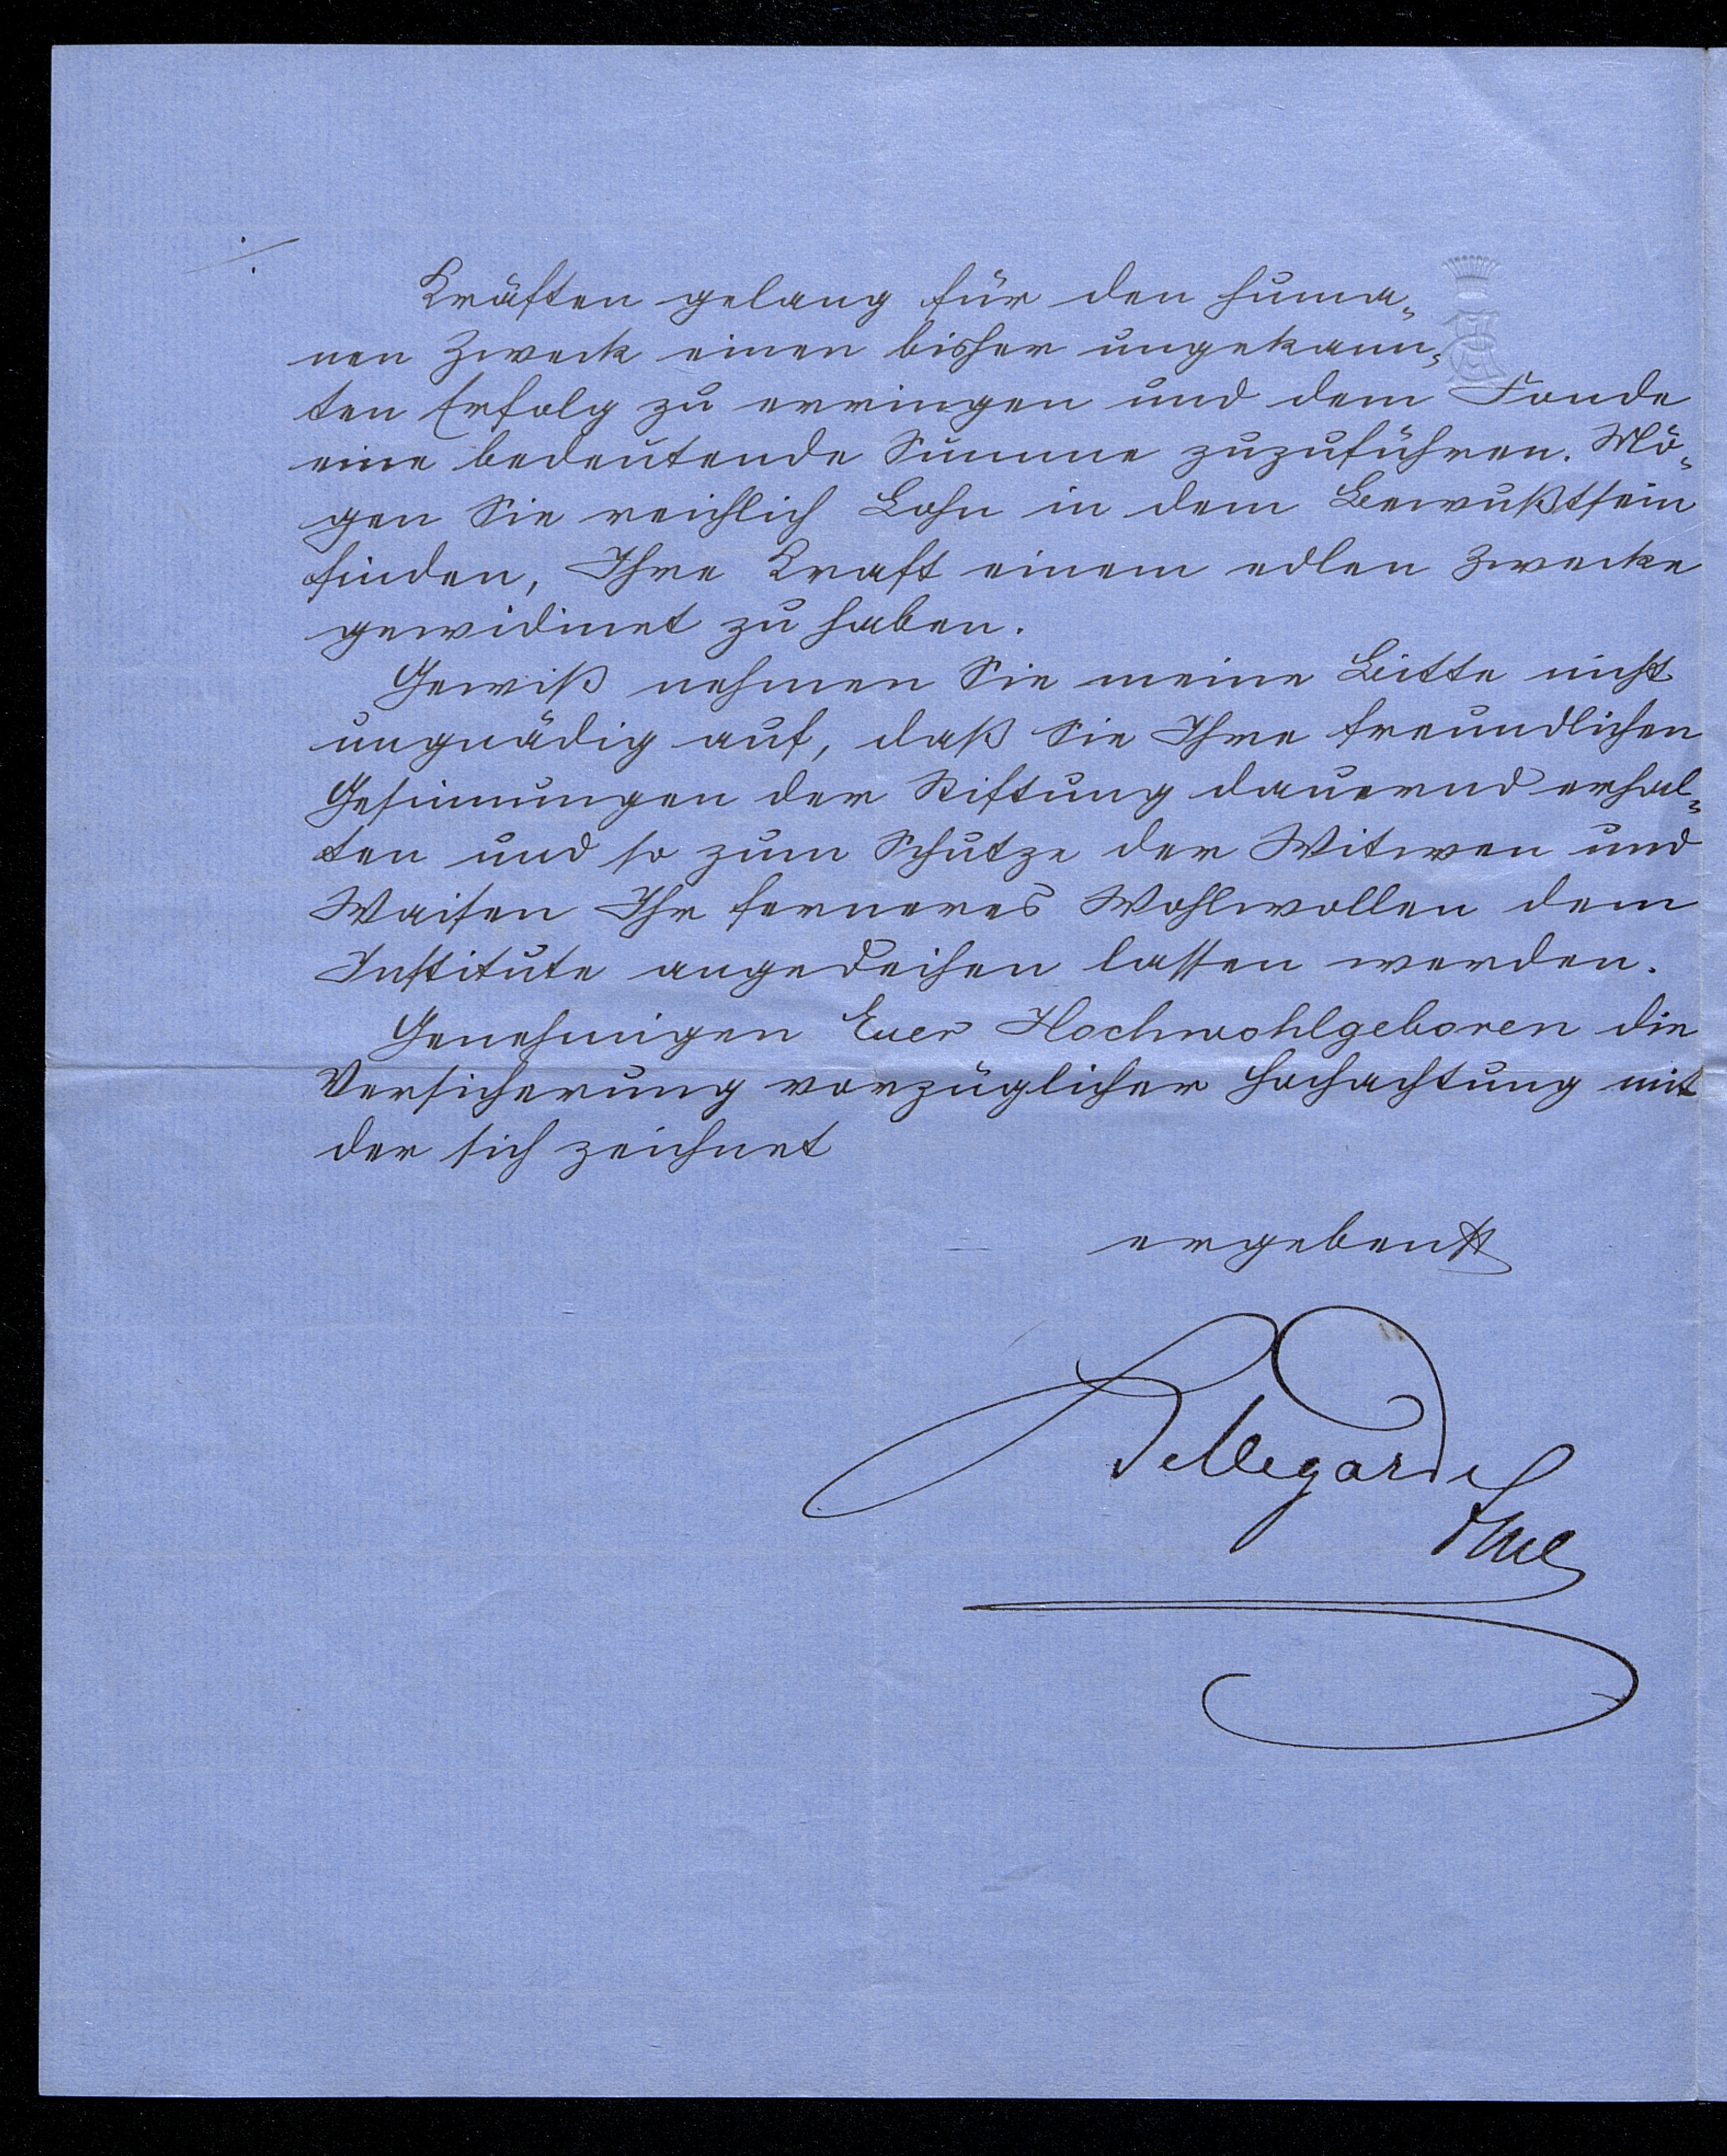 Kräften gelang für den huma-
nen Zweck einen bisher ungekann-
ten Erfolg zu erringen und dem Fonde
eine bedeutende Summe zuzuführen. Mö-
gen Sie reichlich Lohn in dem Bewußtsein
finden, Ihre Kraft einem edlen Zwecke
gewidmet zu haben.
Gewiß nehmen Sie meine Bitte nicht
ungnädig auf, daß Sie Ihre freundlichen
Gesinnungen der Stiftung dauernd erhal-
ten und so zum Schutze der Witwen und
Waisen Ihr ferneres Wohlwollen dem
Institute angedeihen lassen werden.
Genehmigen Euer Hochwohlgeboren die
Versicherung vorzüglicher Hochachtung mit
der sich zeichnet
ergebenst
Bellegarde